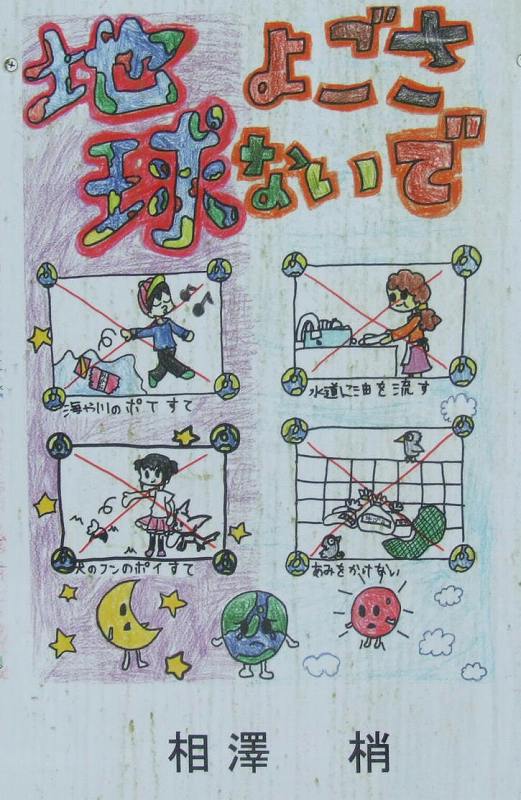 地球
よごさ
ないで
海や川のポイすて
水道に油を流す
犬のフンのポイすて
あみをかけない
相澤 梢